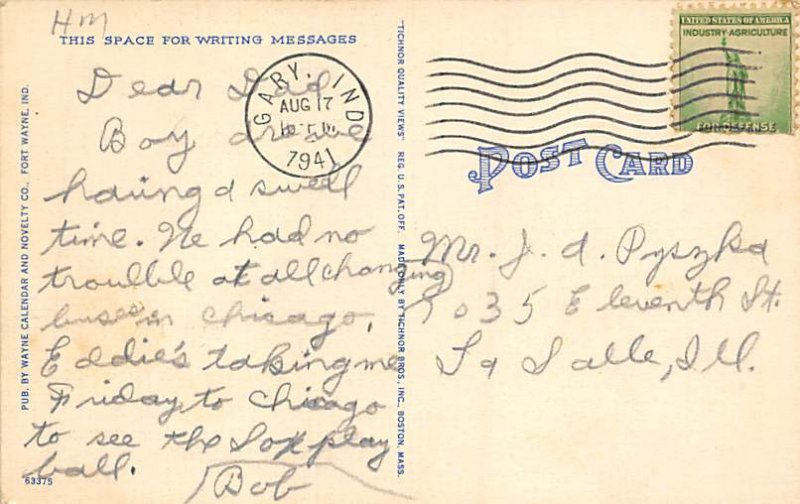 Hm
THIS SPACE FOR WRITING MESSAGES
Dear Dad
Boy are we
having a swell
time. We had no
troulble at all changing
buses in Chicago.
Eddie's taking me
Friday to Chicago
to see the Sox play
ball.
Bob
63375
PUB. BY WAYNE CALENDAR AND NOVELTY CO., FORT WAYNE, IND.
"TICHNOR QUALITY VIEWS" REG. U. S. PAT. OFF. MADE ONLY BY TICHNOR BROS., INC., BOSTON, MASS.
GARY, IND
AUG 17
1941
UNITED STATES OF AMERICA
INDUSTRY-AGRICULTURE
FOR DEFENSE
POST CARD
Mr. J. A. Pyszka
1035 Eleventh St.
La Salle, Ill.